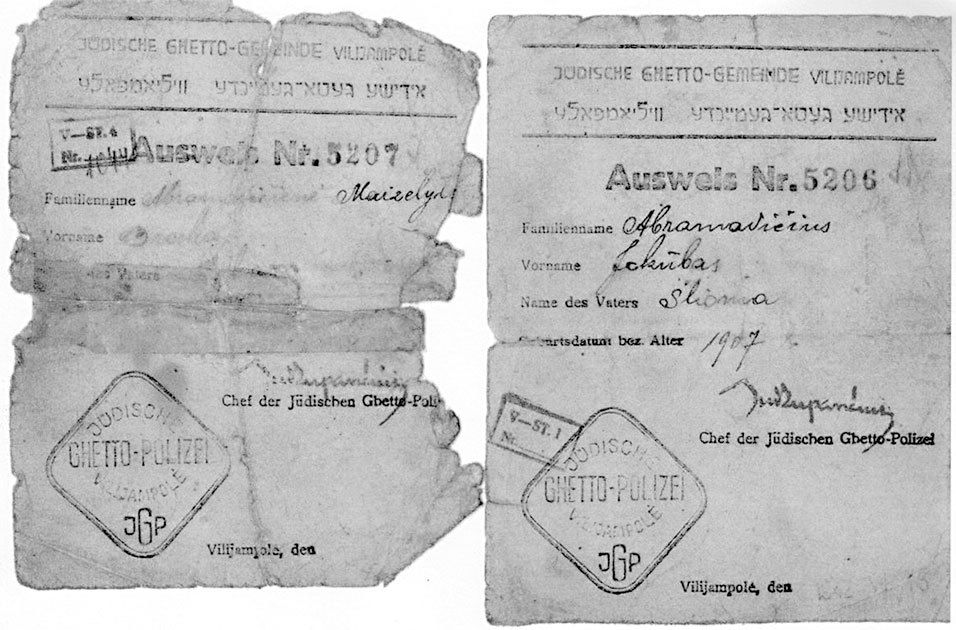 JÜDISCHE GHETTO-GEMEINDE VILIJAMPOLĖ
אידישע געטא־געמיינדע וויליאמפאלע
V—ST. 4
Nr.
Ausweis Nr. 5207
Familienname Maizelytė
Vorname
des Vaters
Chef der Jüdischen Ghetto-Poli
JÜDISCHE
GHETTO-POLIZEI
VILIJAMPOLĖ
JGP
Vilijampolė, den
JÜDISCHE GHETTO-GEMEINDE VILIJAMPOLĖ
אידישע געטא־געמיינדע וויליאמפאלע
Ausweis Nr. 5206
Familienname Abramavičius
Vorname Jokūbas
Name des Vaters Šlioma
Geburtsdatum bez. Alter 1907
Chef der Jüdischen Ghetto-Polizei
V—ST. 1
Nr.
JÜDISCHE
GHETTO-POLIZEI
VILIJAMPOLĖ
JGP
Vilijampolė, den